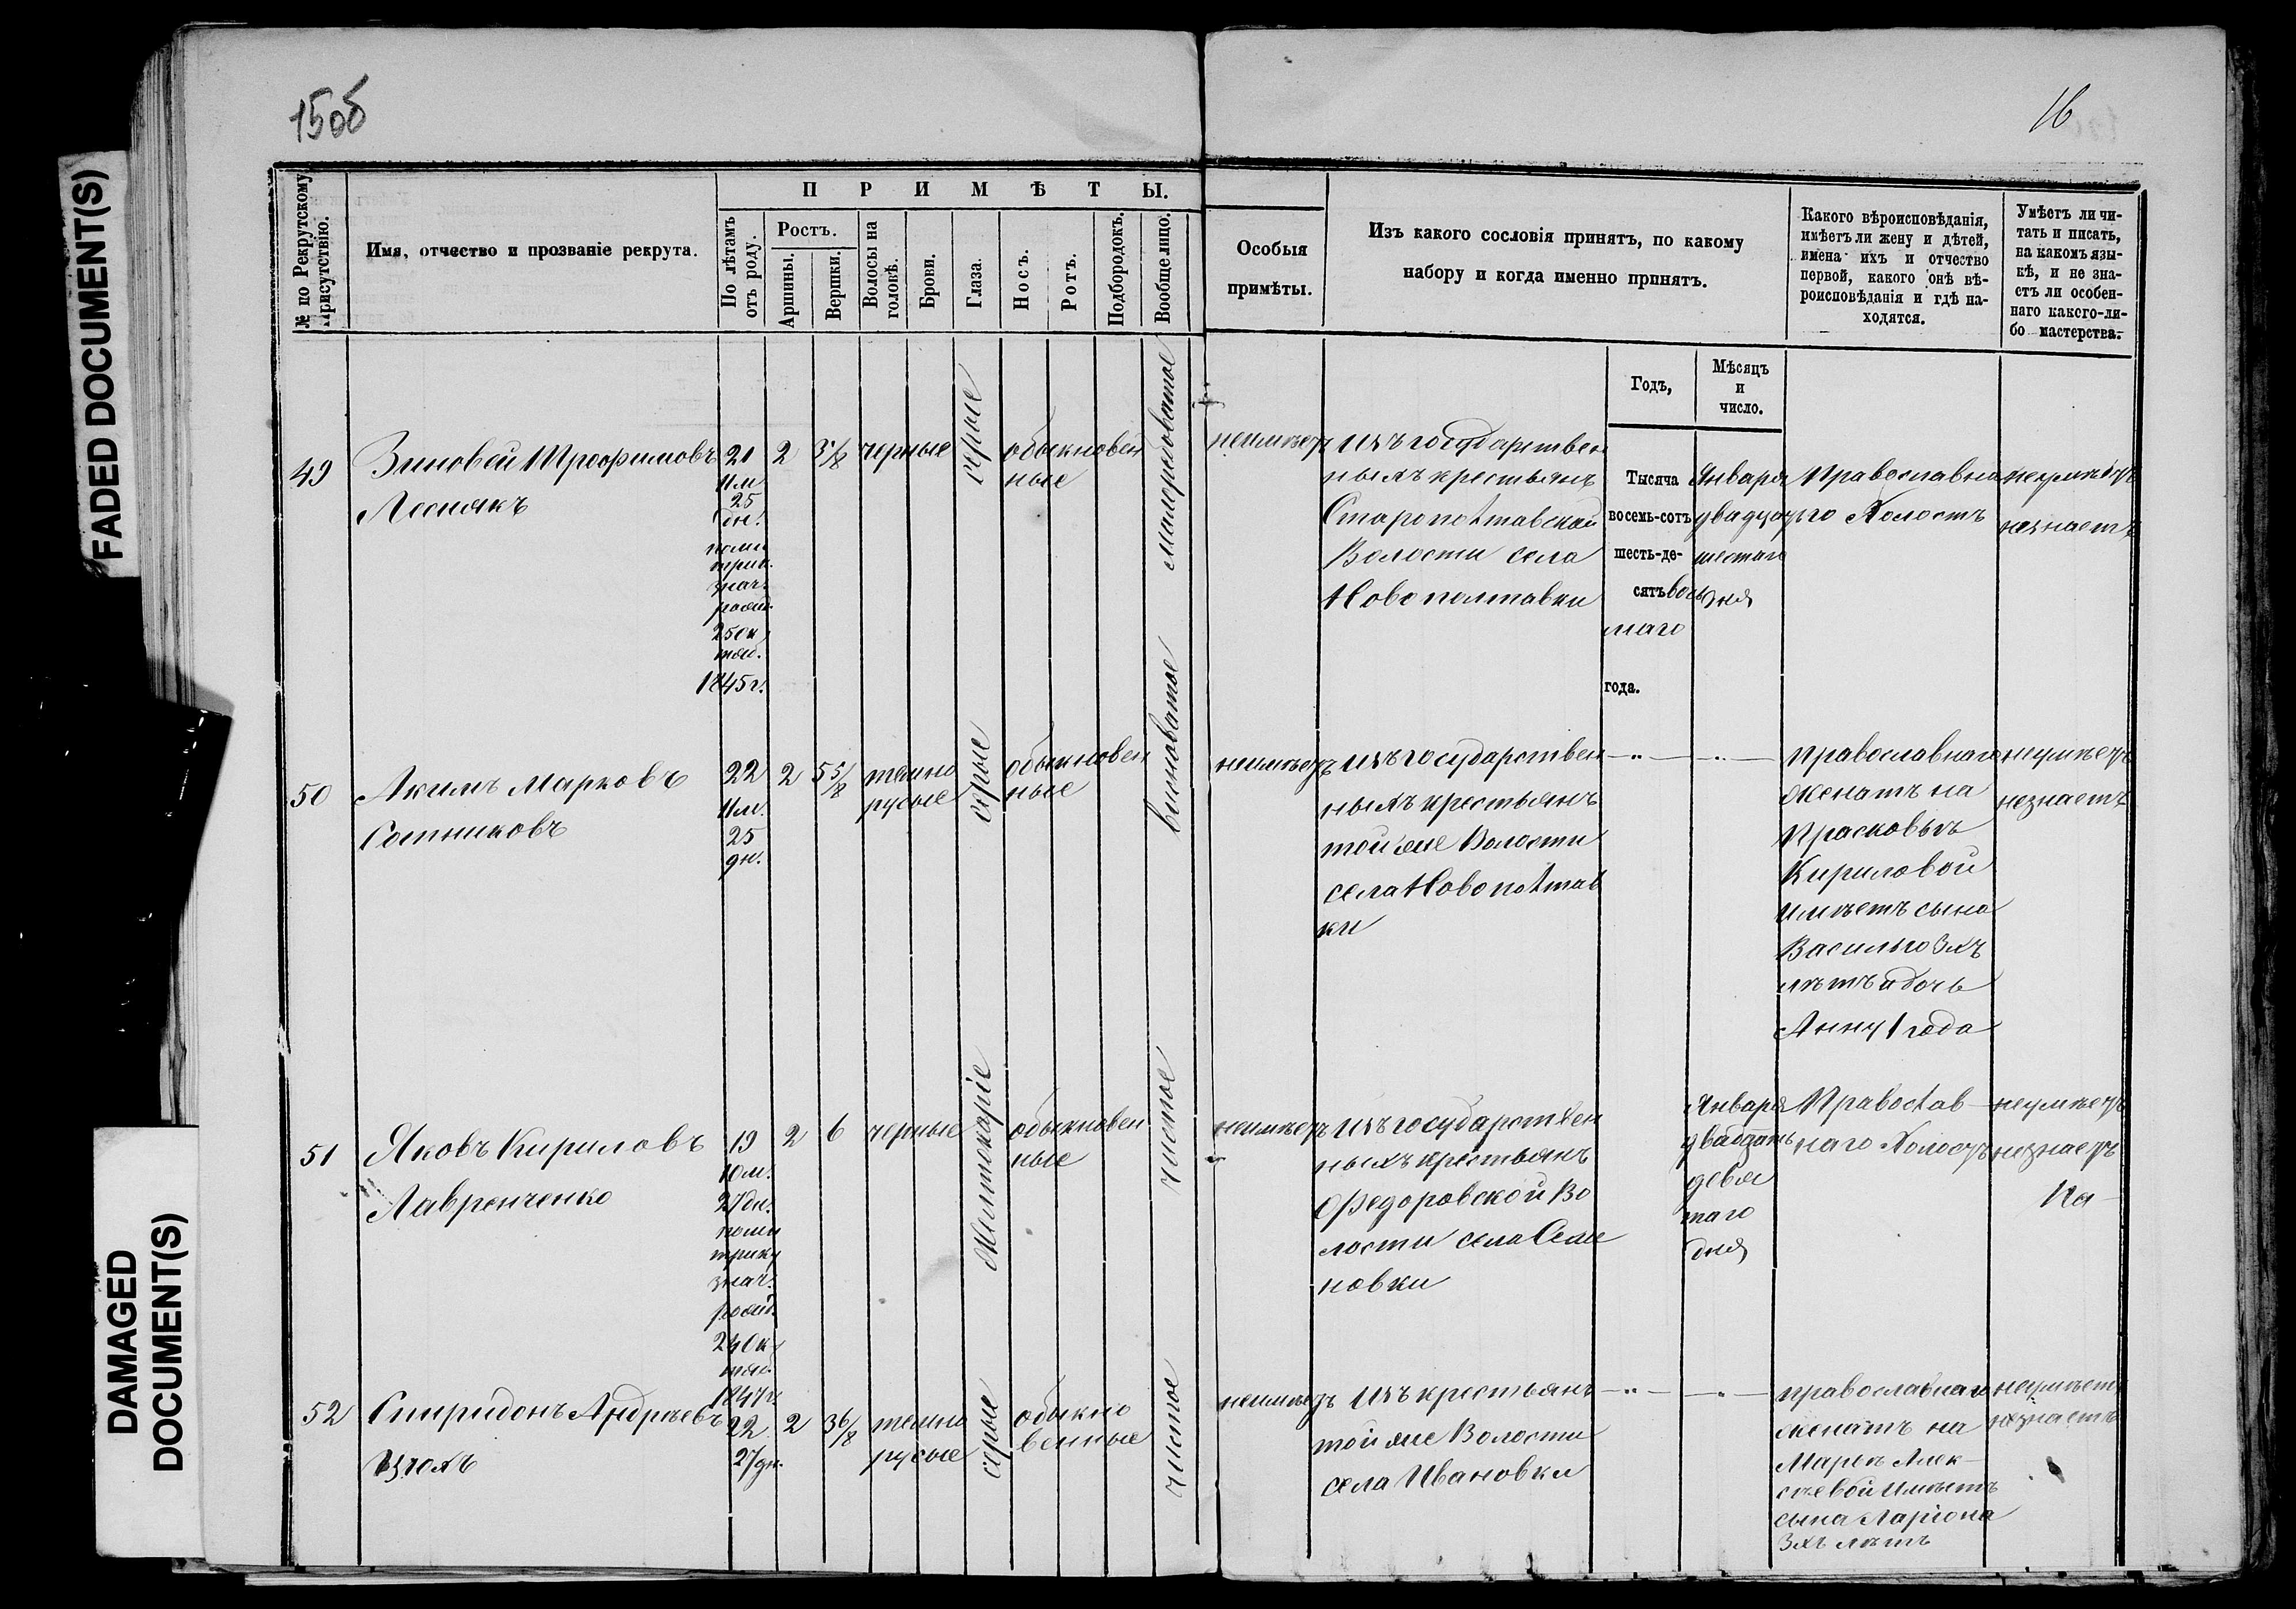 FADED DOCUMENT(S)
DAMAGED
DOCUMENT(S)
15об
16
№ по Рекрутскому
Присутствію.
Имя, отчество и прозваніе рекрута.
ПРИМѢТЫ.
По лѣтамъ
отъ роду.
Ростъ.
Аршины.
Вершки.
Волосы на
головѣ.
Брови.
Глаза.
Носъ.
Ротъ.
Подбородокъ.
Вообще лицо.
Особыя
примѣты.
Изъ какого сословія принятъ, по какому
набору и когда именно принятъ.
Какого вѣроисповѣданія,
имѣетъ ли жену и дѣтей,
имена ихъ и отчество
первой, какого онѣ вѣ-
роисповѣданія и гдѣ на-
ходятся.
Умѣетъ ли чи-
тать и писать,
на какомъ язы-
кѣ, и не зна-
етъ ли особен-
наго какого-ли-
бо мастерства.
Годъ,
Мѣсяцъ
и
число.
49
Зиновей Трофимовъ
Леснякъ
21
11м
25
дн.
25 Ок
тяб.
1845г.
2
черные
серые
обыкновен
ные
неимѣетъ
Изъ государствен
ныхъ крестьянъ
Старополтавской
Волости села
Новополтавки
Тысяча
восемь-сотъ
шесть-де-
сятъ вось
маго
года.
Января
двадцать
шестаго
дня
Православна
го Холостъ
неумѣетъ
незнаетъ
50
Акимъ Марковъ
Сотниковъ
22
11м.
25
дн.
2
5 5/8
темно
русые
серые
обыкновен
ные
неимѣетъ
Изъ государствен
ныхъ крестьянъ
той же Волости
села Новополтав
ки
— „ —
— „ —
Православнаго
женатъ на
Прасковьѣ
Кириловой
имѣетъ сына
Василья 3хъ
лѣтъ и дочь
Анну 1 года
неумѣетъ
незнаетъ
51
Яковъ Кириловъ
Лавренченко
19
10м.
27дн.
24 Ок
тяб.
1847г.
2
6
черные
обыкновен
ные
чистое
неимѣетъ
Изъ государствен
ныхъ крестьянъ
Федоровской Во
лости села Семе
новки
Января
двадцать
девя
таго
дня
Православ-
наго Холостъ
неумѣетъ
незнаетъ
52
Спиридонъ Андреевъ
22
27дн.
2
3 6/8
темно
русые
серые
обыкно
венные
чистое
неимѣетъ
Изъ крестьянъ
той же Волости
села Ивановки
— „ —
— „ —
православнаго
женатъ на
Марьѣ Алек-
сѣевой имѣетъ
сына Ларіона
3хъ лѣтъ
неумѣетъ
незнаетъ